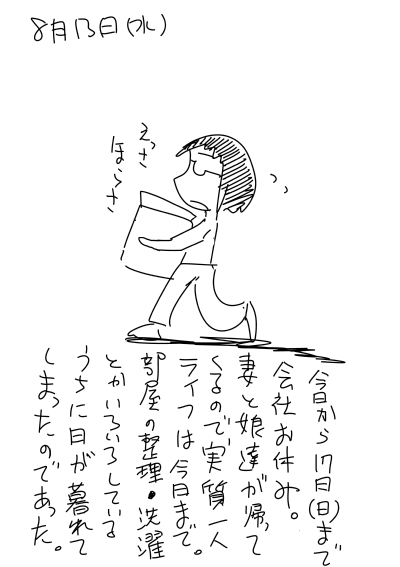 8月13日(水)
えっさ
ほらさ
今日から17日(日)まで
会社お休み。
妻と娘達が帰って
くるので実質一人
ライフは今日まで。
部屋の整理・洗濯
とかいろいろしている
うちに日が暮れて
しまったのであった。